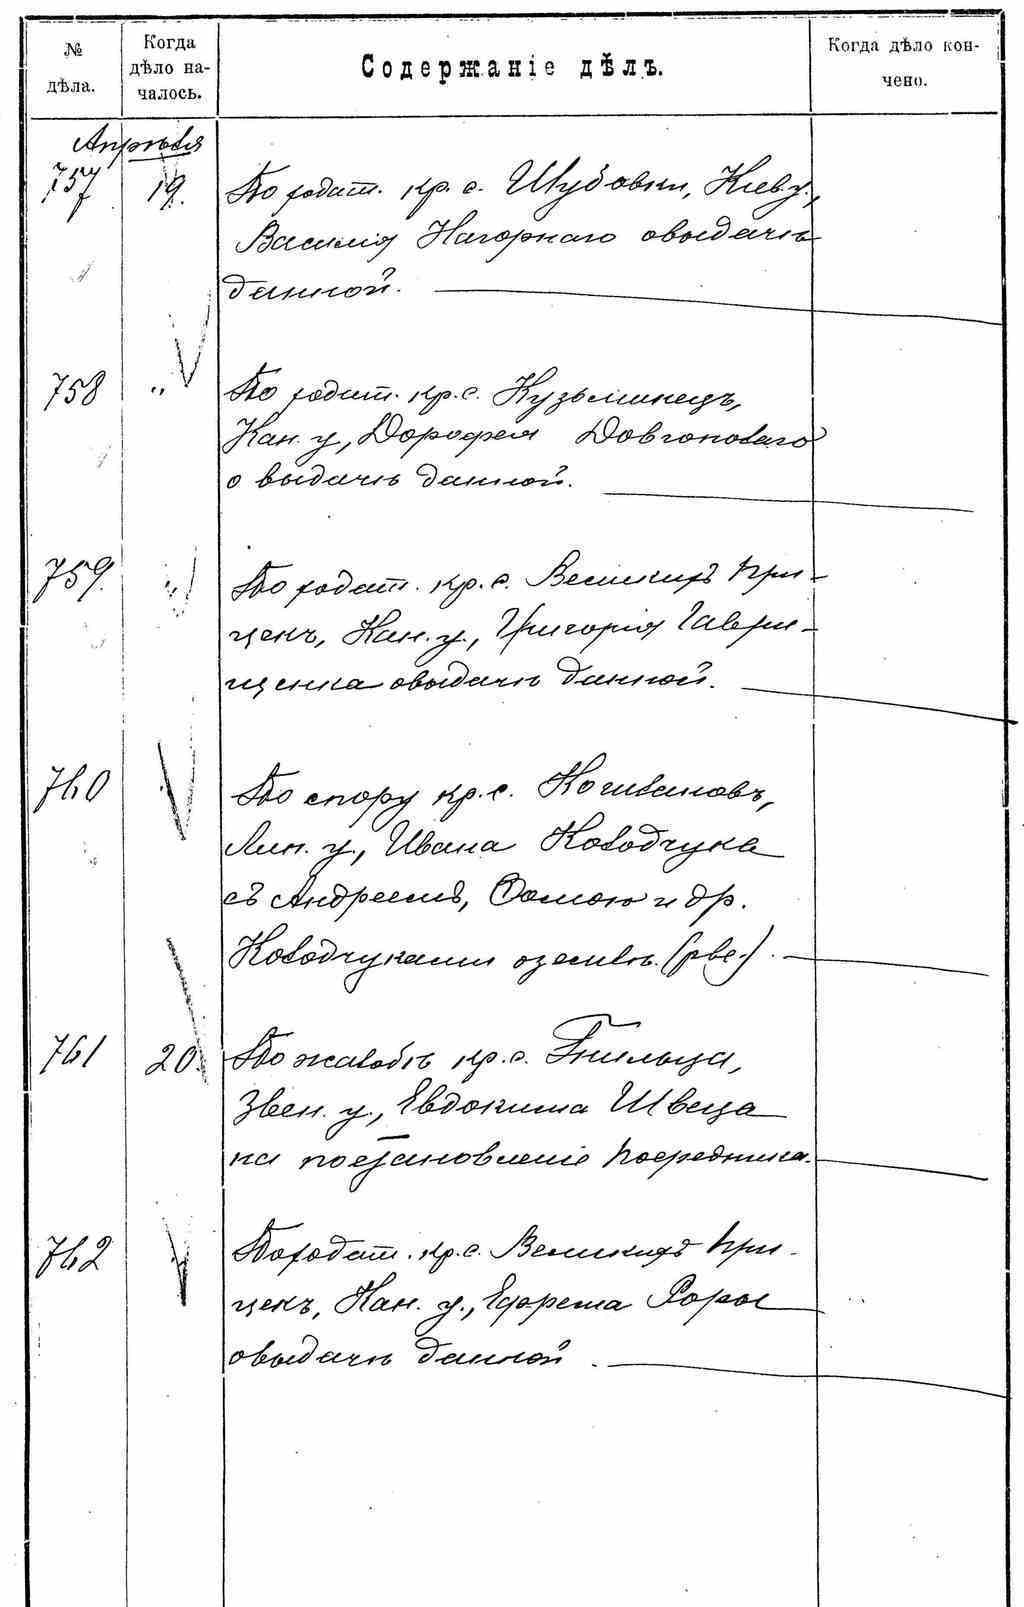 № дѣла.
Когда дѣло на-
чалось.
Содержаніе дѣлъ.
Когда дѣло кон-
чено.
Апрѣля
757 19. По ходат. кр. с. Шубовки, Кіев. у.,
Василія Нагорнаго о выдачѣ
данной.
758 „ По ходат. кр. с. Кузьминецъ,
Кан. у., Дорофея Довгополаго
о выдачѣ данной.
759. „ По ходат. кр. с. Великихъ При-
цекъ, Кан. у., Григорія Гаври-
щенка о выдачѣ данной.
760 По спору кр. с.
Лип. у., Ивана Колодчука
съ Андреемъ, Ѳомою и др.
Колодчуками о землѣ. (рве.).
761 20. По жалобѣ кр. с. Гнильца,
Звен. у., Евдокима Швеца
на постановленіе Посредника.
762 По ходат. кр. с. Великихъ При-
цекъ, Кан. у., Ефрема
о выдачѣ данной.